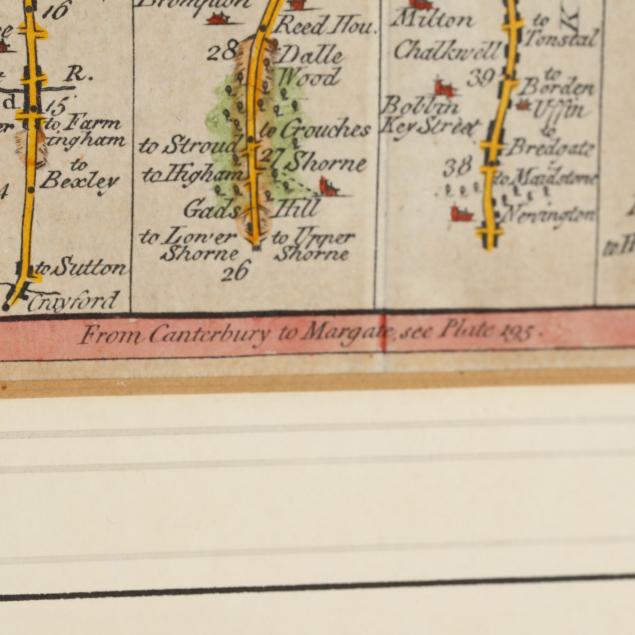 16
R.
15
to Farm
ingham
to
Bexley
to Sutton
Crayford
Brompton
Reed Hou.
28
Dalle
Wood
to Crouches
to Stroud
27 Shorne
to Higham
Gads Hill
to Lower
Shorne
to Upper
Shorne
26
Milton
to
Tonstal
K
Chalkwell
39
to
Borden
Uffin
Bobbin
Key Street
to
Bredgate
38
to Maidstone
Newington
From Canterbury to Margate, see Plate 195.